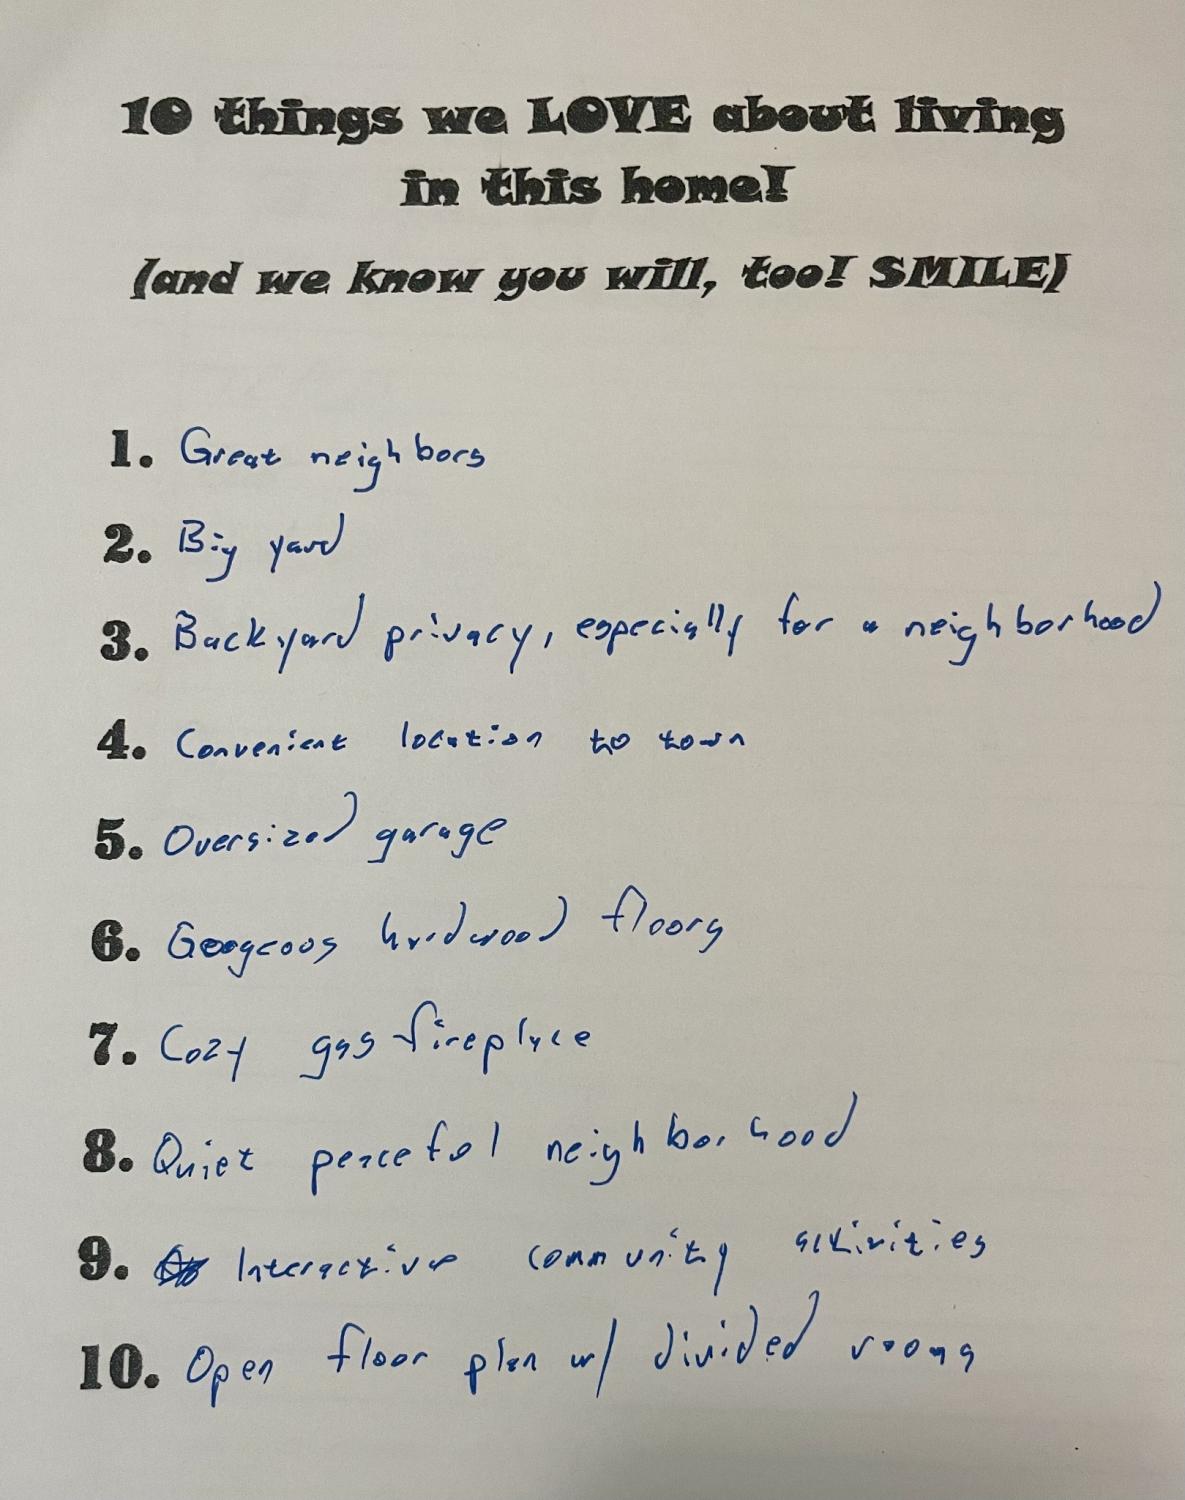 10 things we LOVE about living
in this home!
(and we know you will, too! SMILE)
1. Great neighbors
2. Big yard
3. Backyard privacy, especially for a neighborhood
4. Convenient location to town
5. Oversized garage
6. Gorgeous hardwood floors
7. Cozy gas fireplace
8. Quiet peaceful neighborhood
9. Interactive community activities
10. Open floor plan w/ divided rooms